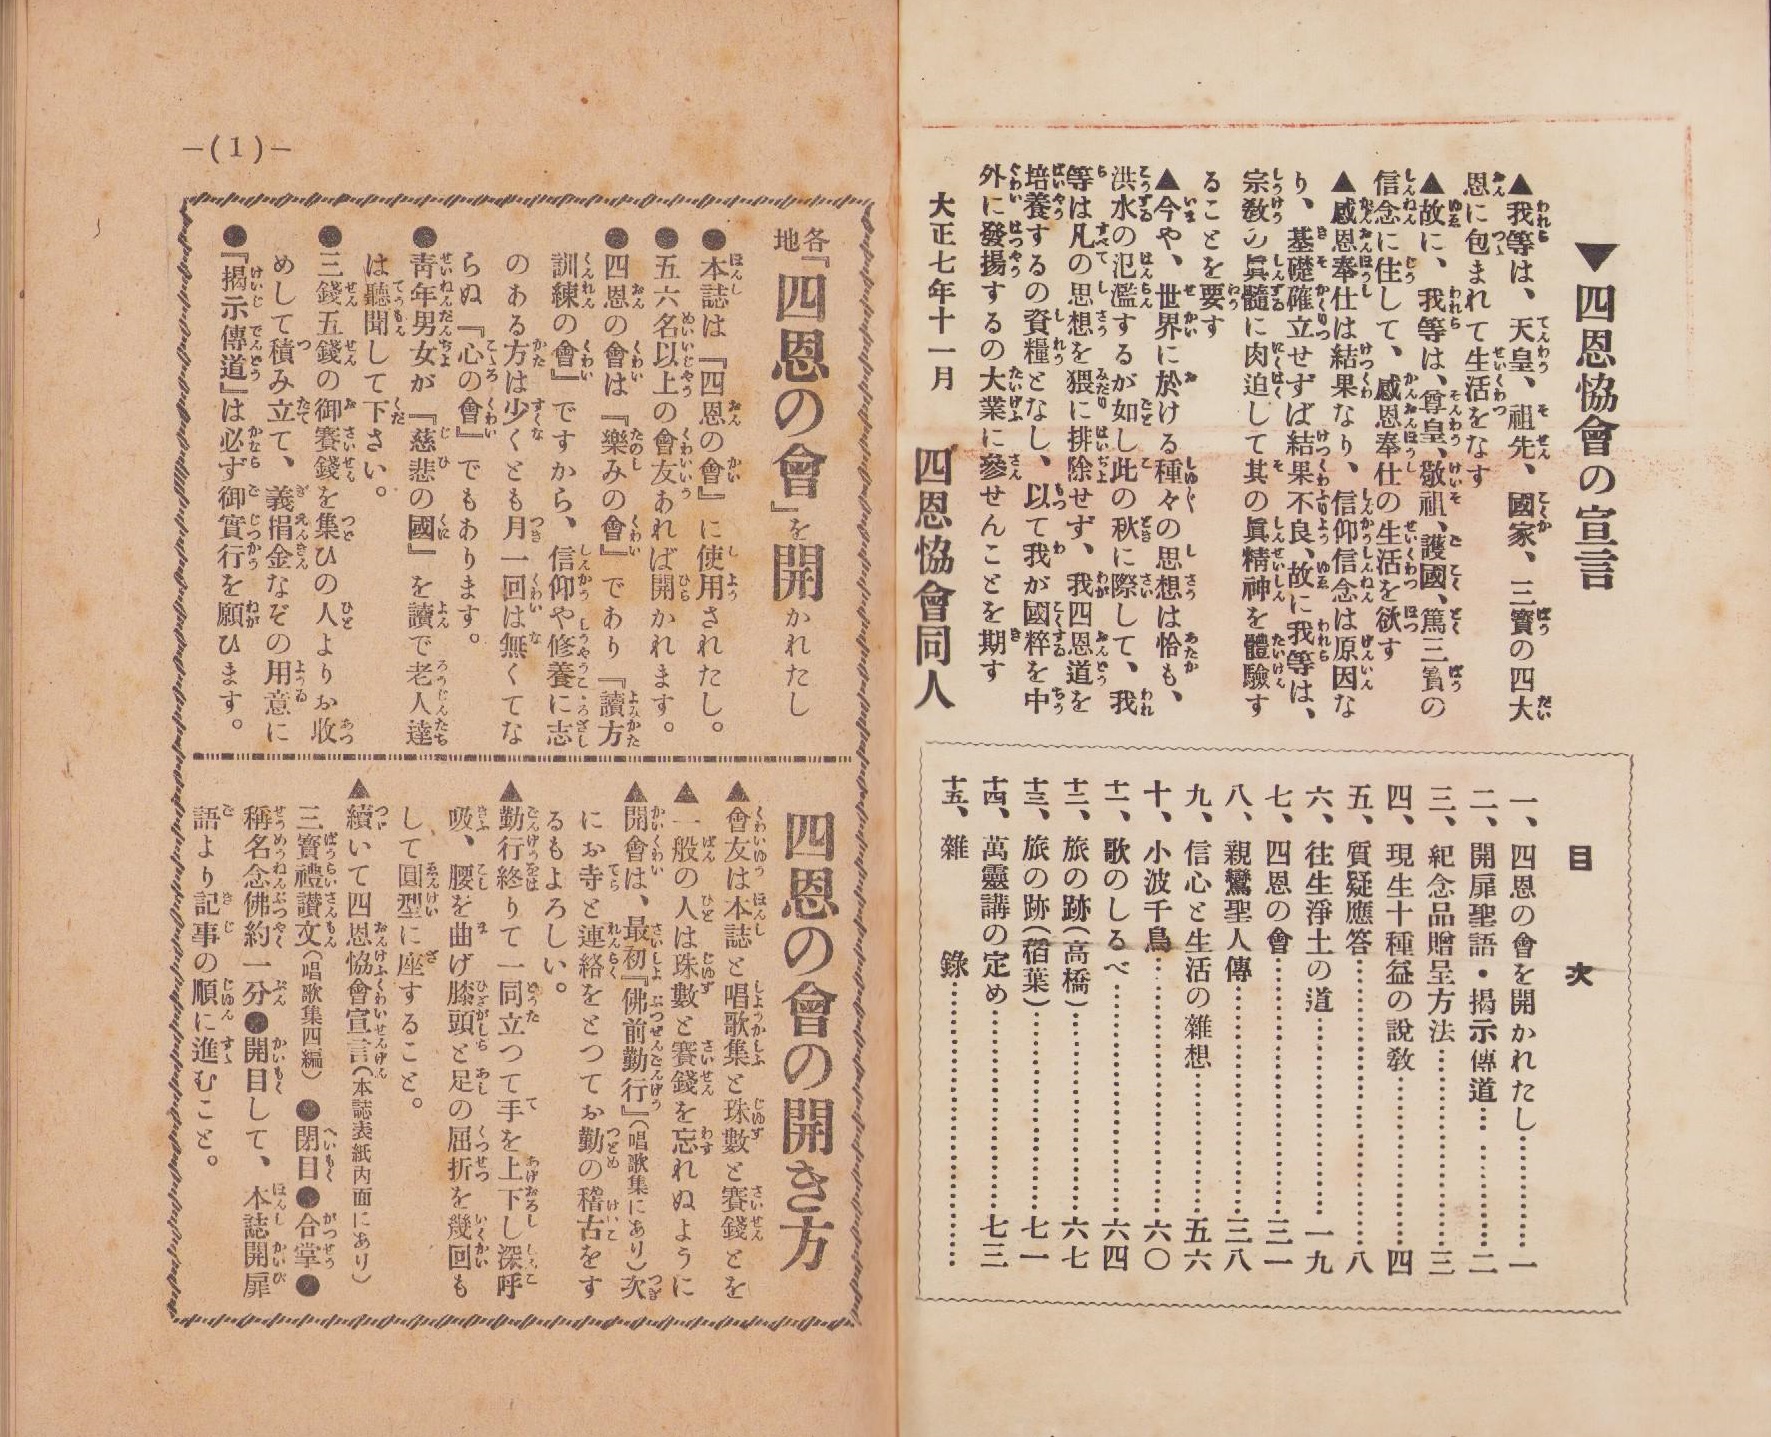 ▼四恩恊會の宣言
▲我等は、天皇、祖先、國家、三寳の四大
恩に包まれて生活をなす
▲故に、我等は、尊皇、敬祖、護國、篤三寳の
信念に住して、感恩奉仕の生活を欲す
▲感恩奉仕は結果なり、信仰信念は原因な
り、基礎確立せずば結果不良、故に我等は、
宗敎の眞髓に肉迫して其の眞精神を體驗す
ることを要す
▲今や、世界に於ける種々の思想は恰も、
洪水の氾濫するが如し此の秋に際して、我
等は凡の思想を猥に排除せず、我四恩道を
培養するの資糧となし、以て我が國粹を中
外に發揚するの大業に參せんことを期す
大正七年十一月 四恩恊會同人
目次
一、四恩の會を開かれたし…………一
二、開扉聖語・揭示傳道…………二
三、紀念品贈呈方法…………三
四、現生十種益の說敎…………四
五、質疑應答…………八
六、往生淨土の道…………一九
七、四恩の會…………三一
八、親鸞聖人傳…………三八
九、信心と生活の雜想…………五六
十、小波千鳥…………六〇
十一、歌のしるべ…………六四
十二、旅の跡(高橋)…………六七
十三、旅の跡(稻葉)…………七一
十四、萬靈講の定め…………七三
十五、雜錄…………
—(1)—
各地『四恩の會』を開かれたし
●本誌は『四恩の會』に使用されたし。
●五六名以上の會友あれば開かれます。
●四恩の會は『樂みの會』であり『讀方
訓練の會』ですから、信仰や修養に志
のある方は少くとも月一回は無くてな
らぬ『心の會』でもあります。
●靑年男女が『慈悲の國』を讀で老人達
は聽聞して下さい。
●三錢五錢の御賽錢を集ひの人よりお收
めして積み立て、義捐金なぞの用意に
●『揭示傳道』は必ず御實行を願ひます。
四恩の會の開き方
▲會友は本誌と唱歌集と珠數と賽錢とを
▲一般の人は珠數と賽錢を忘れぬように
▲開會は、最初『佛前勤行』(唱歌集にあり)次
にお寺と連絡をとつてお勤の稽古をす
るもよろしい。
▲勤行終りて一同立つて手を上下し深呼
吸、腰を曲げ膝頭と足の屈折を幾回も
して圓型に座すること。
▲續いて四恩恊會宣言(本誌表紙内面にあり)
三寳禮讃文(唱歌集四編)●閉目●合掌●
稱名念佛約一分●開目して、本誌開扉
語より記事の順に進むこと。